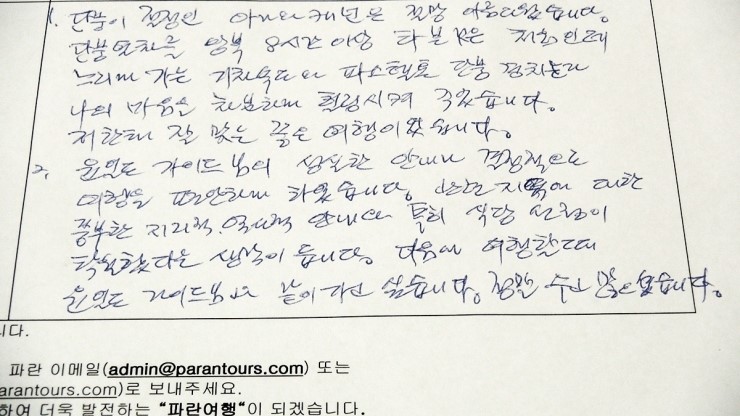 1. 단풍이 절정인 아가와캐년은 정말 아름다웠습니다.
단풍열차를 왕복 8시간 이상 타본 것은 처음인데
느리게 가는 기차속도와 파스텔톤 단풍
나의 마음을 차분하게 힐링시켜 주었습니다.
저한테 잘 맞는 좋은 여행이었습니다.
2. 윤일도 가이드님의 성실한 안내가 결정적으로
여행을 편안하게 하였습니다. 관련 지역에 대한
풍부한 지리적, 역사적 안내와 특히 식당 선정이
탁월했다는 생각이 듭니다. 다음에 여행할때
윤일도 가이드님과 같이 가고 싶습니다. 정말 수고 많으셨습니다.
니다.
파란 이메일(admin@parantours.com) 또는
arantours.com)로 보내주세요.
하여 더욱 발전하는 "파란여행"이 되겠습니다.